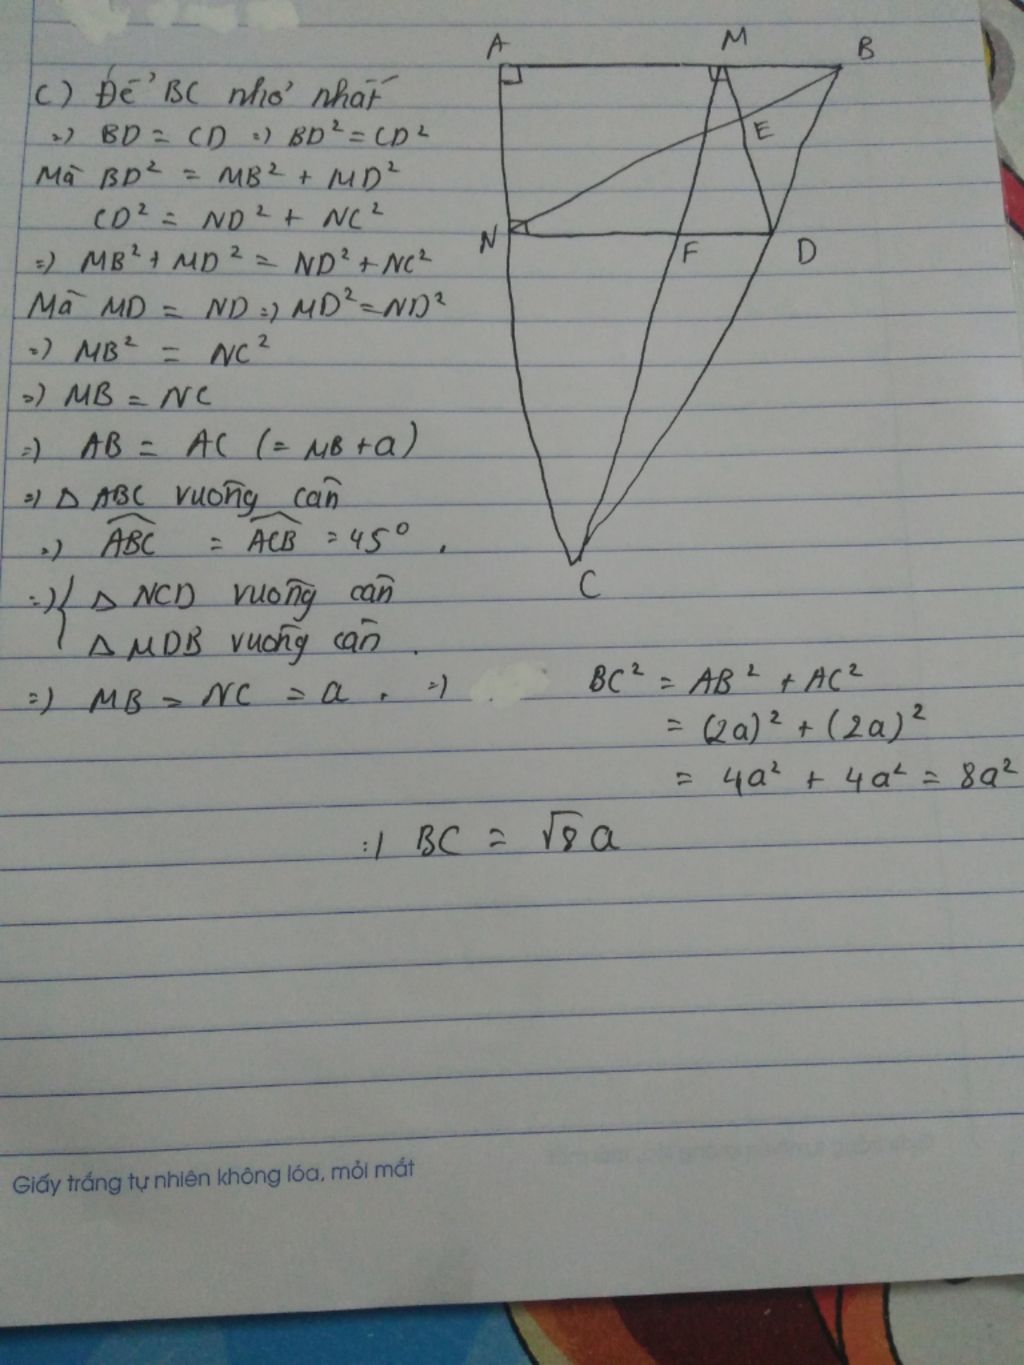 A M B
c) Để BC nhỏ nhất
=) BD = CD =) BD² = CD²
E
Mà BD² = MB² + MD²
CD² = ND² + NC²
N F D
=) MB² + MD² = ND² + NC²
Mà MD = ND =) MD² = ND²
=) MB² = NC²
=) MB = NC
=) AB = AC (= MB + a)
=) Δ ABC vuông cân
=) ABC = ACB = 45° .
C
=) { Δ NCD vuông cân
Δ MDB vuông cân .
=) MB = NC = a . =) BC² = AB² + AC²
= (2a)² + (2a)²
= 4a² + 4a² = 8a²
=) BC = √8 a
Giấy trắng tự nhiên không lóa, mỏi mắt